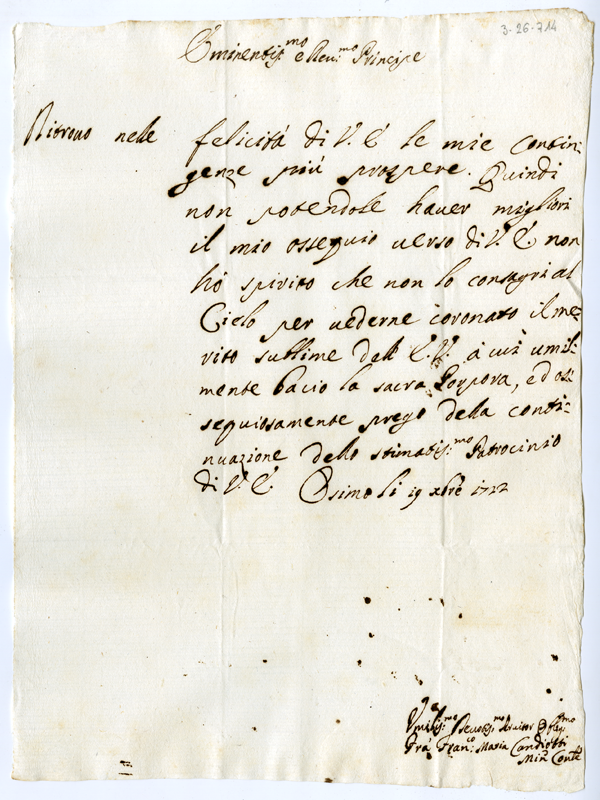 3-26-714
Eminentis:mo e Reu:mo Principe
Ritrouo nelle felicità di V. E. le mie contin:
genze più prospere. Quindi
non potendole hauer migliori
il mio ossequio uerso di V. E. non
hò spirito che non lo consagri al
Cielo per uederne coronato il me:
rito sublime dell' E. V. à cui umil:
mente bacio la sacra Porpora, ed os:
sequiosamente prego della conti:
nuazione dello stimatis:mo Patrocinio
di V. E. Osimo li 19 xbre 1712
Vmilis:mo Deuotis:mo Seruitor Oss:mo
Fra Fran:co Maria Candiotti
Min: Conte